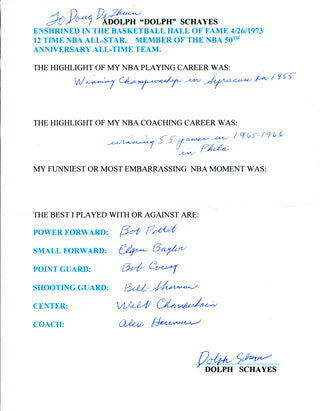 To Doug
ADOLPH "DOLPH" SCHAYES
ENSHRINED IN THE BASKETBALL HALL OF FAME 4/26/1973
12 TIME NBA ALL-STAR. MEMBER OF THE NBA 50TH
ANNIVERSARY ALL-TIME TEAM.
THE HIGHLIGHT OF MY NBA PLAYING CAREER WAS:
Winning Championship in Syracuse in 1955
THE HIGHLIGHT OF MY NBA COACHING CAREER WAS:
winning 55 games in 1965-1966
in Phila
MY FUNNIEST OR MOST EMBARRASSING NBA MOMENT WAS:
THE BEST I PLAYED WITH OR AGAINST ARE:
POWER FORWARD: Bob Pettit
SMALL FORWARD: Elgin Baylor
POINT GUARD: Bob Cousy
SHOOTING GUARD: Bill Sharman
CENTER: Wilt Chamberlain
COACH: Alex Hannum
Dolph Schayes
DOLPH SCHAYES